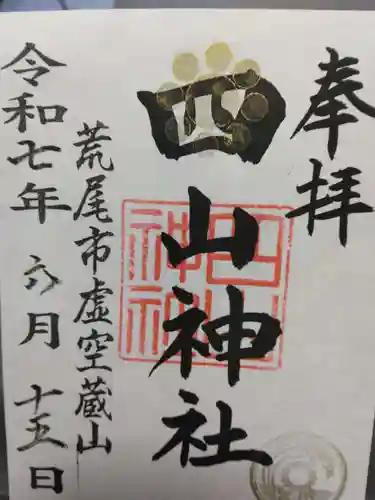 奉拝
四山神社
荒尾市虚空蔵山
令和七年 六月 十五日